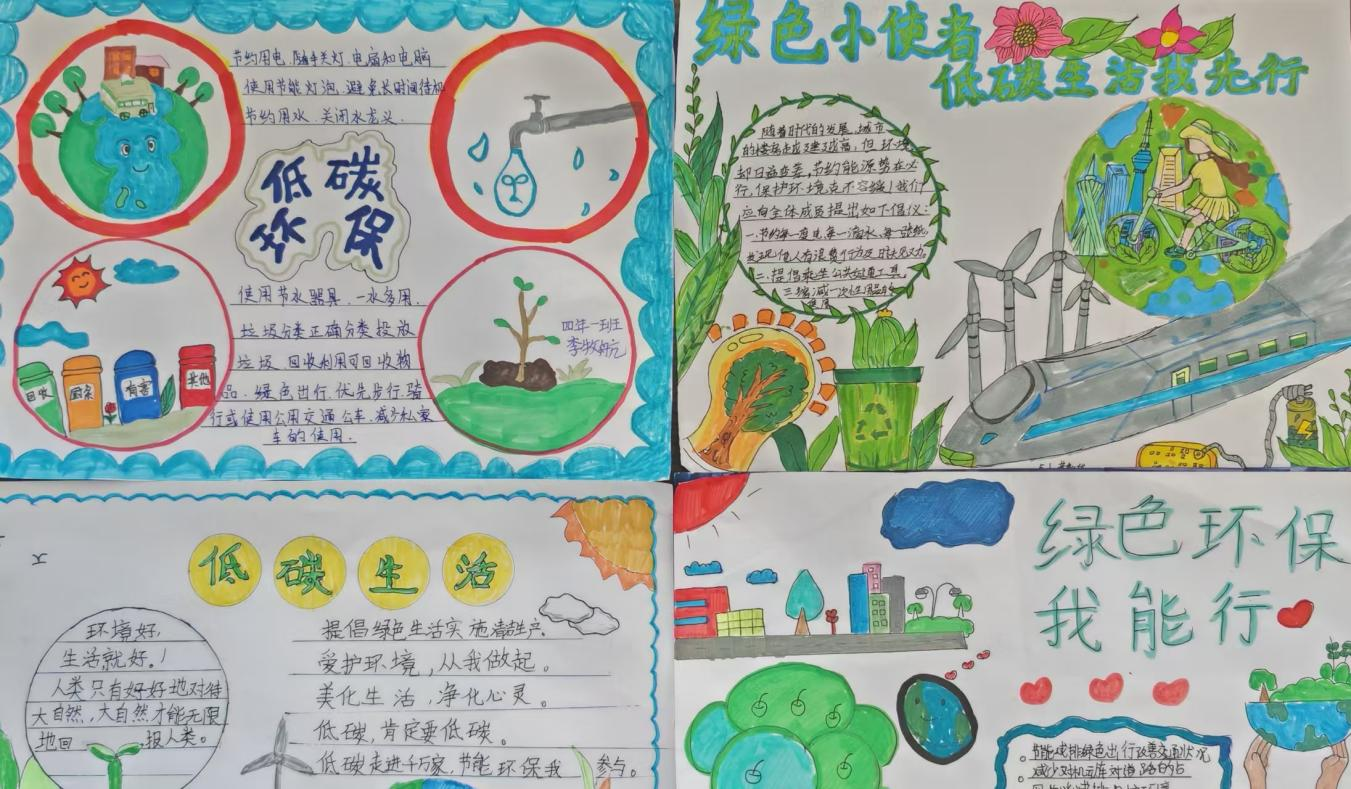 节约用电,随手关灯.电扇和电脑
使用节能灯泡.避免长时间待机
节约用水.关闭水龙头.
低碳
环保
使用节水器具.一水多用.
垃圾分类正确分类投放
垃圾.回收利用可回收物
品.绿色出行.优先步行.骑
行或使用公用交通公车.减少私家
车的使用.
回收
厨余
有害
其他
四年一班
绿色小使者
低碳生活我先行
随着时代的发展,城市
的楼房越建越高,但环境
却日益恶劣,节约能源势在必
行,保护环境克不容缓!我们
应向全体成员提出如下倡仪:
一.节约每一度电,每一滴水,每一张纸,
二.提倡乘坐公共交通工具,
低碳生活
环境好,
生活就好。!
人类只有好好地对待
大自然,大自然才能无限
地回 报人类。
提倡绿色生活实施清洁生产.
爱护环境,从我做起。
美化生活,净化心灵。
低碳,肯定要低碳。
低碳走进千万家,节能环保我 参与。
绿色环保
我能行
节能减排绿色出行改善交通状况
减少对机动车对道路的占